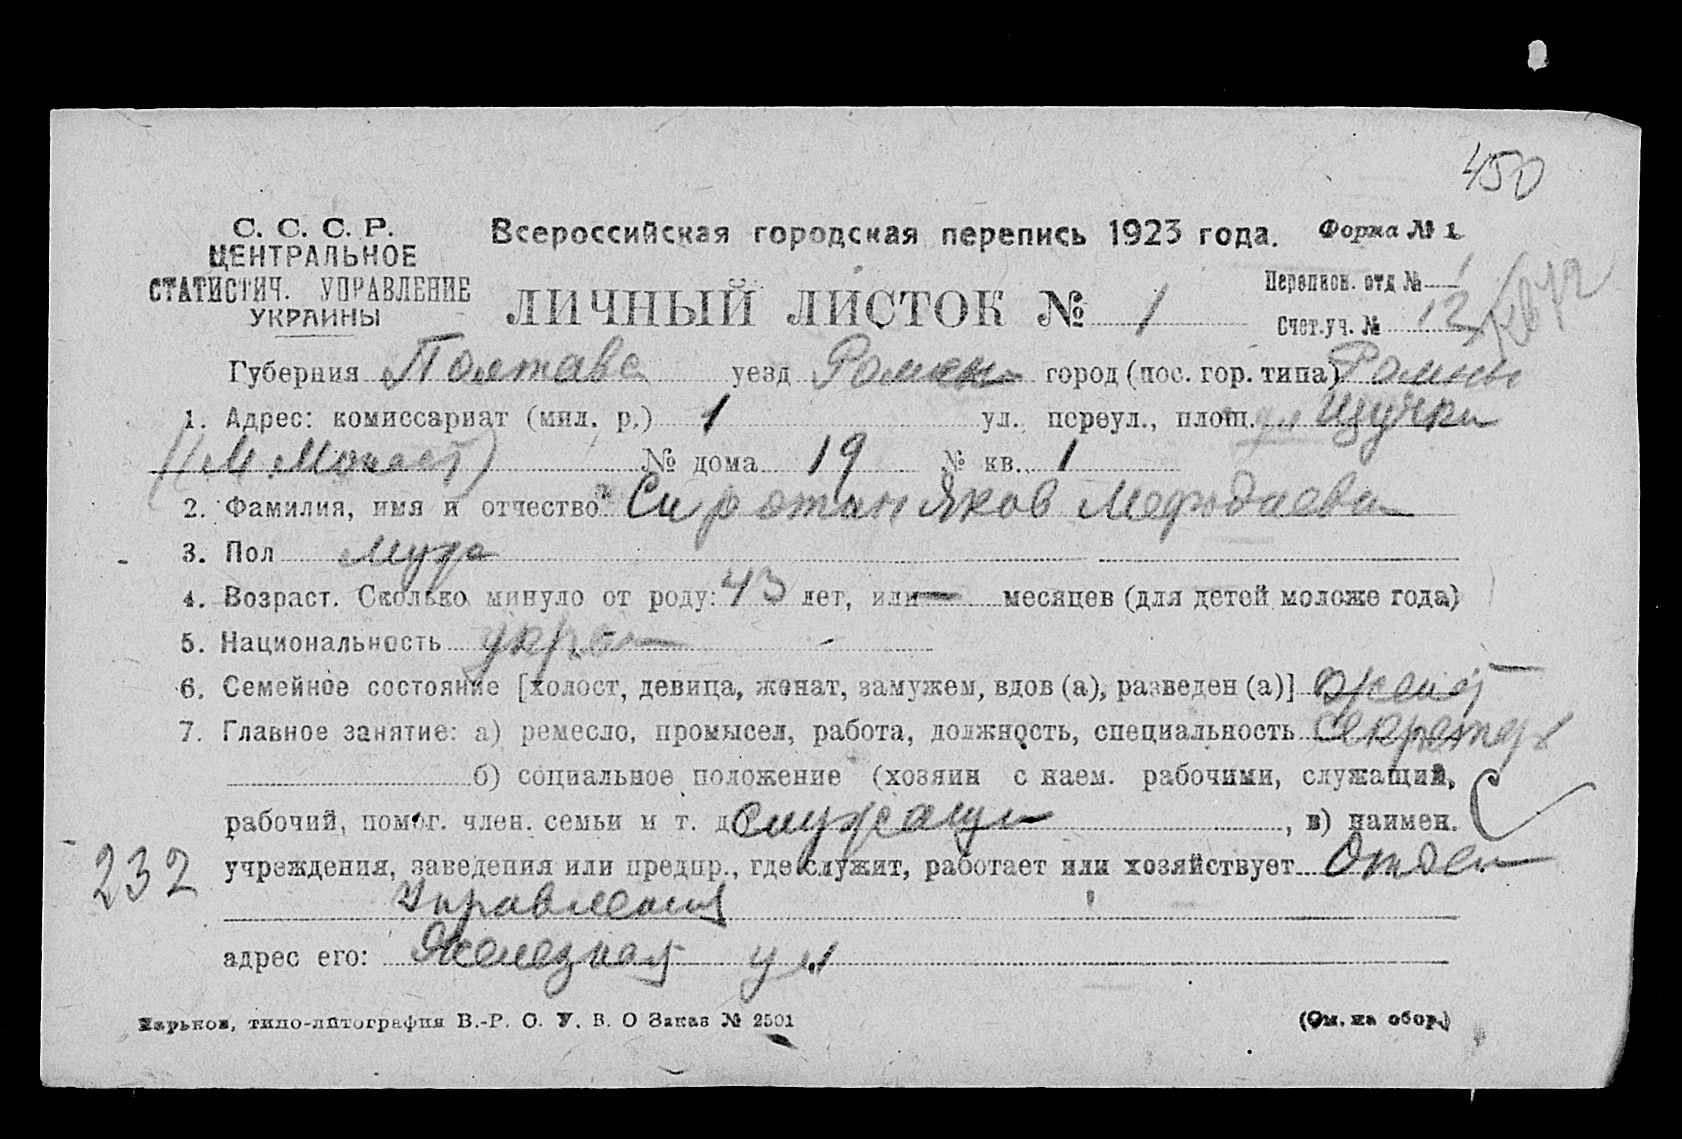 450
С. С. С. Р.
ЦЕНТРАЛЬНОЕ
СТАТИСТИЧ. УПРАВЛЕНИЕ
УКРАИНЫ
Всероссийская городская перепись 1923 года. Форма № 1
ЛИЧНЫЙ ЛИСТОК № 1
Перепион. отд № 1
Счет.уч. № 12
Губерния Полтавс уезд Ромен город (пос. гор. типа) Ромны
1. Адрес: комиссариат (мил. р.) 1 ул., переул., площ. ул Щучки
(М. Монаст) № дома 19 № кв. 1
2. Фамилия, имя и отчество Сиротин Яков Мефодиев
3. Пол Муж
4. Возраст. Сколько минуло от роду: 43 лет, или — месяцев (для детей моложе года)
5. Национальность укра
6. Семейное состояние [холост, девица, женат, замужем, вдов (а), разведен (а)] женат
7. Главное занятие: а) ремесло, промысел, работа, должность, специальность Секретарь
б) социальное положение (хозяин с наем. рабочими, служащий,
рабочий, помог. член. семьи и т. д служащи , в) наимен. С
232 учреждения, заведения или предпр., где служит, работает или хозяйствует Отдел
Управления
адрес его: Железная ул
Харьков, типо-литография В.-Р. О. У. В. О Заказ № 2501 (См. на обор.)